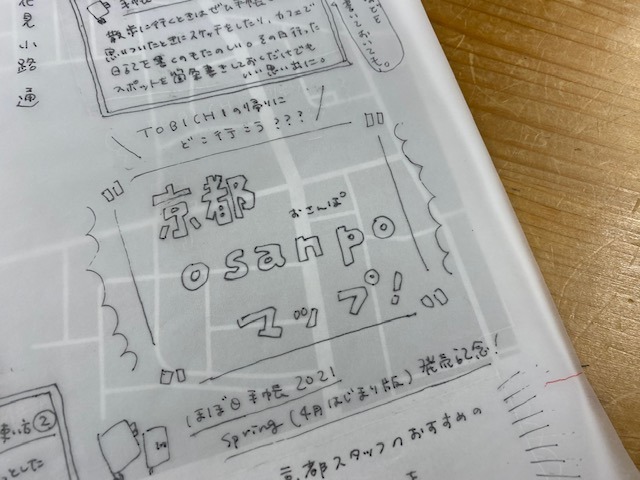 花見小路通
手帳
散歩に行くときはぜひ手帳
思いついたときにスケッチをしたり、カフェで
日記を書くのもたのしい。その日行った
スポットを箇条書きしておくだけでも
いい思い出に。
書いておいても。
TOBICHIの帰りに
どこ行こう???
京都
おさんぽ
osanpo
マップ!
ほぼ日手帳 2021
spring (4月はじまり版) 発売記念!
京都スタッフのおすすめの
使い方②